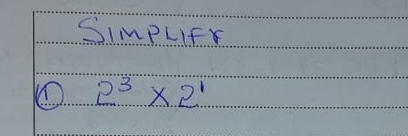 SIMPLIFY
① 2³ × 2¹